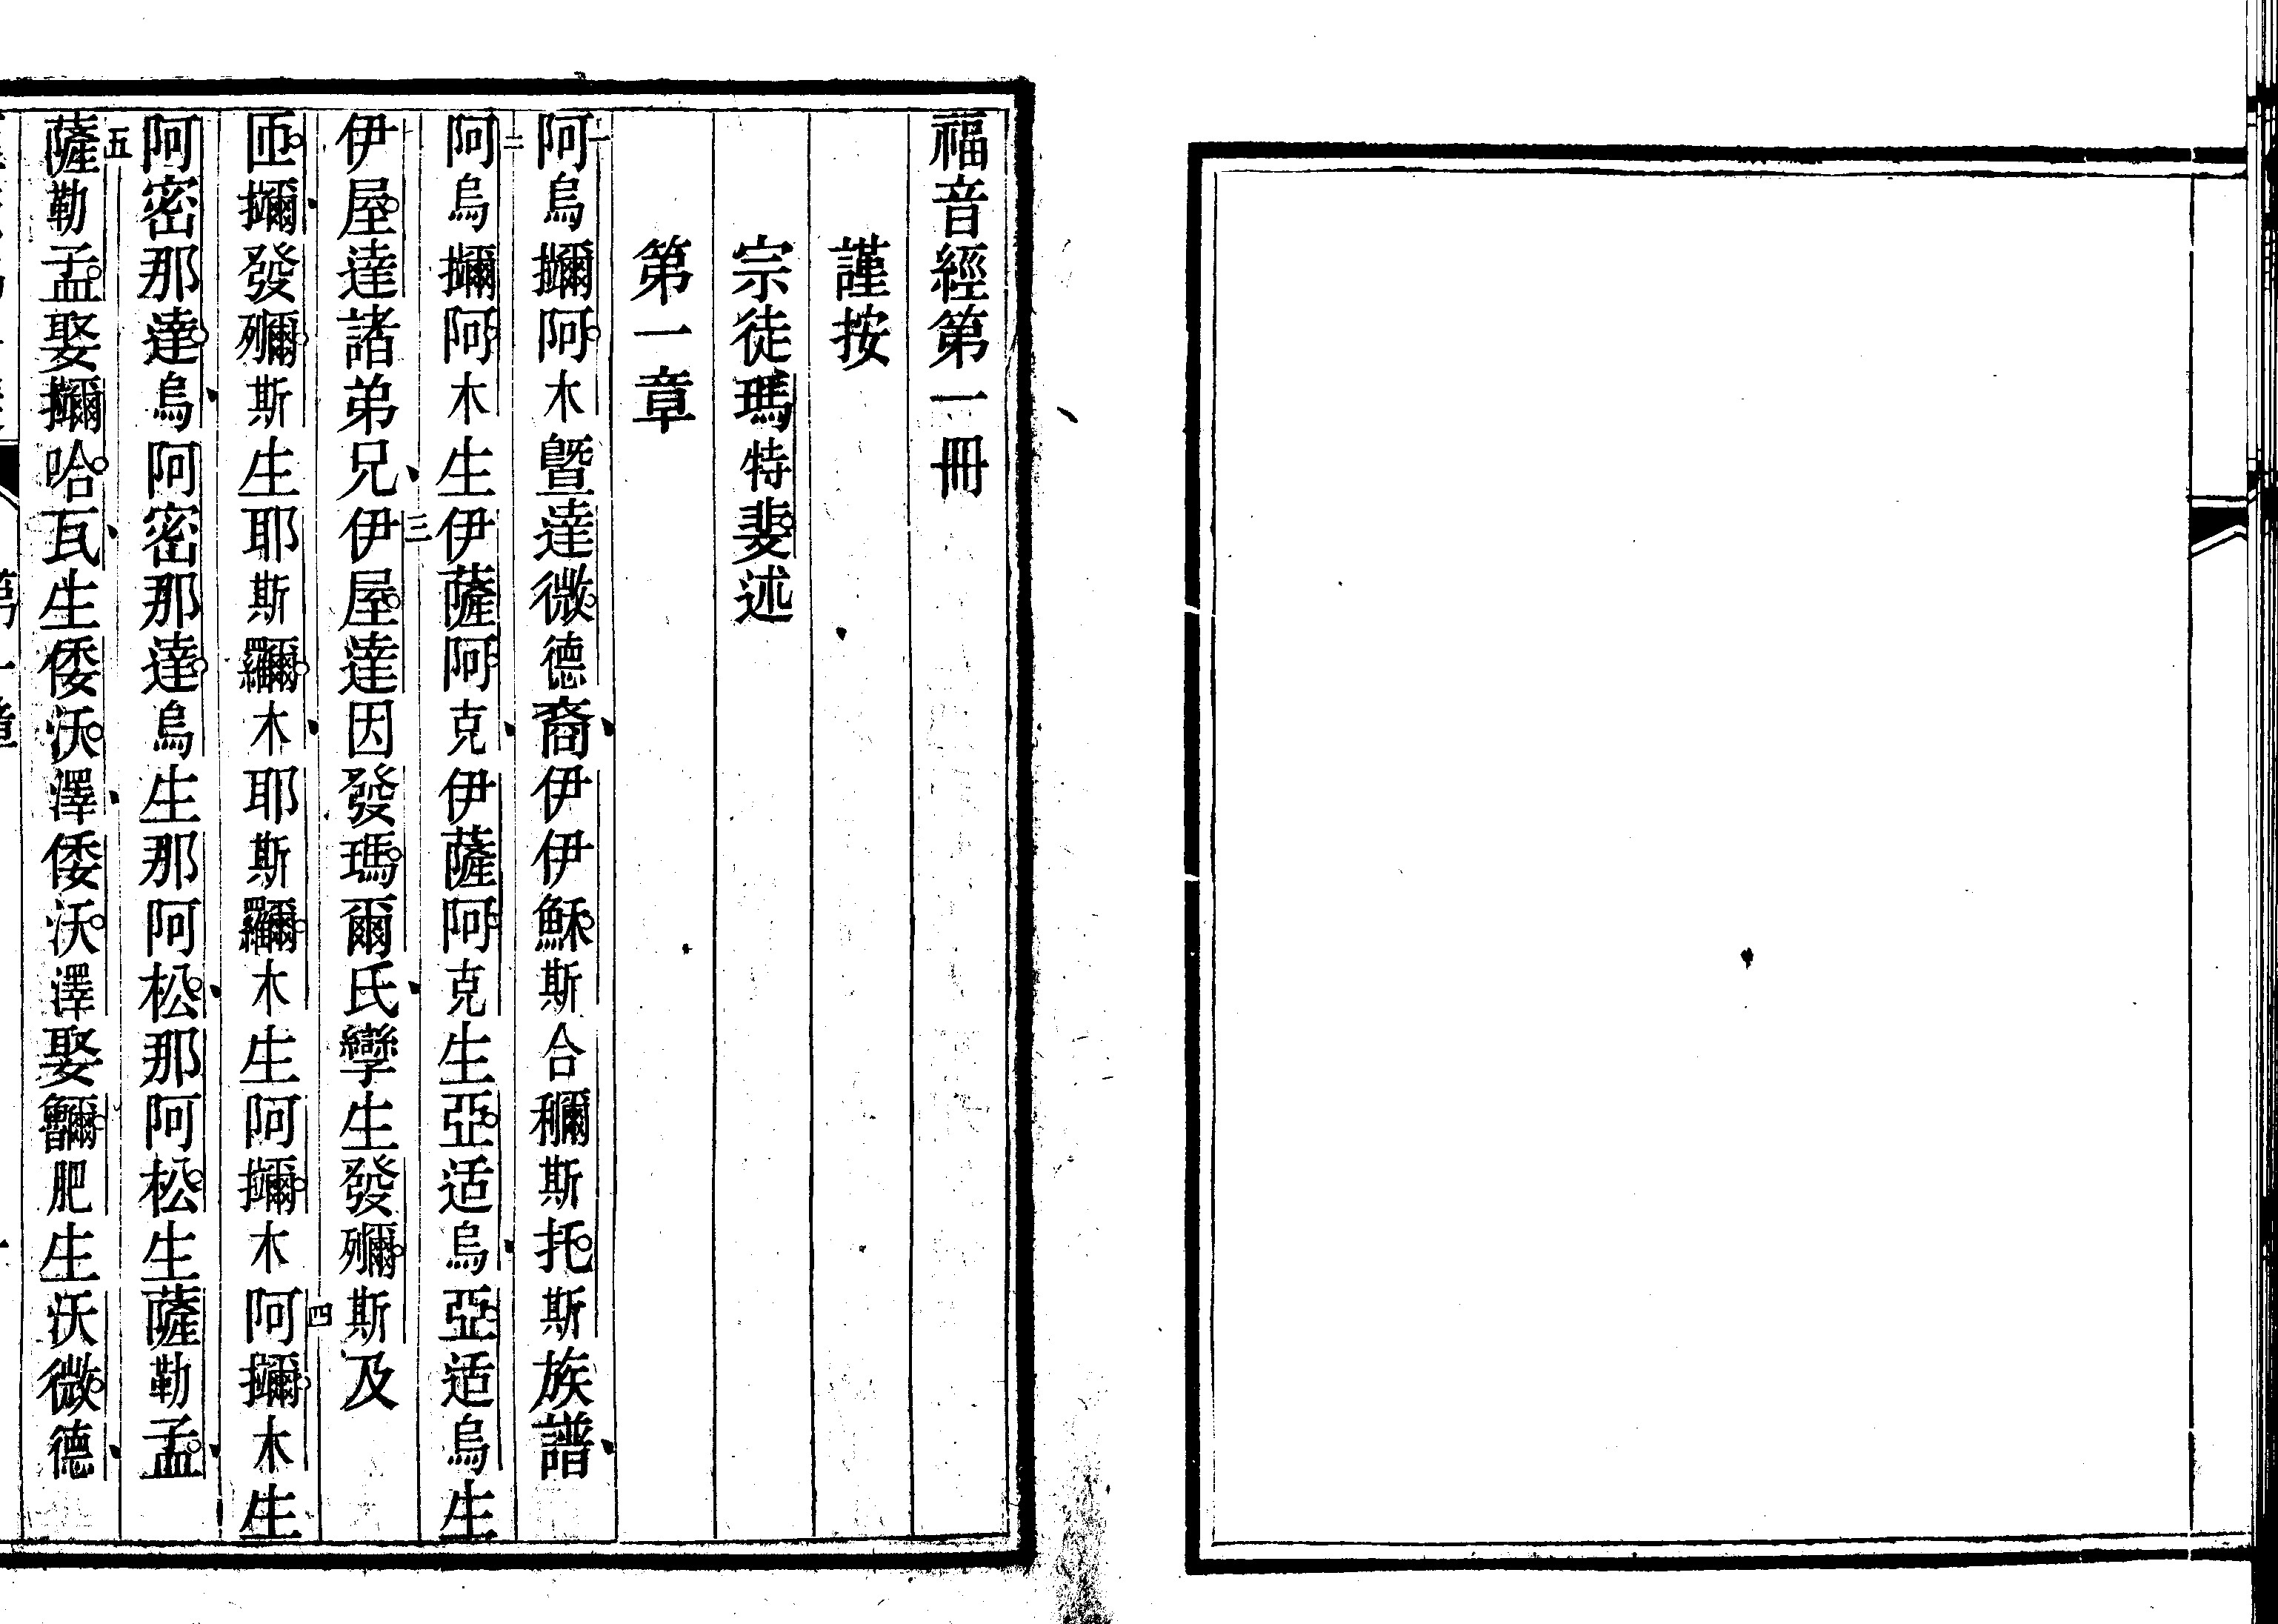 福音經第一冊
謹按
宗徒瑪特斐述
第一章
一阿烏阿木暨達微德裔伊伊穌斯合斯托斯族譜
二阿烏阿木生伊薩阿克伊薩阿克生亞适烏亞适烏生
伊屋達諸弟兄三伊屋達因發瑪爾氏孿生發斯及
匝發斯生耶斯木耶斯木生阿木四阿木生
阿密那達烏阿密那達烏生那阿松那阿松生薩勒孟
五薩勒孟娶哈瓦生倭沃澤倭沃澤娶肥生沃微德